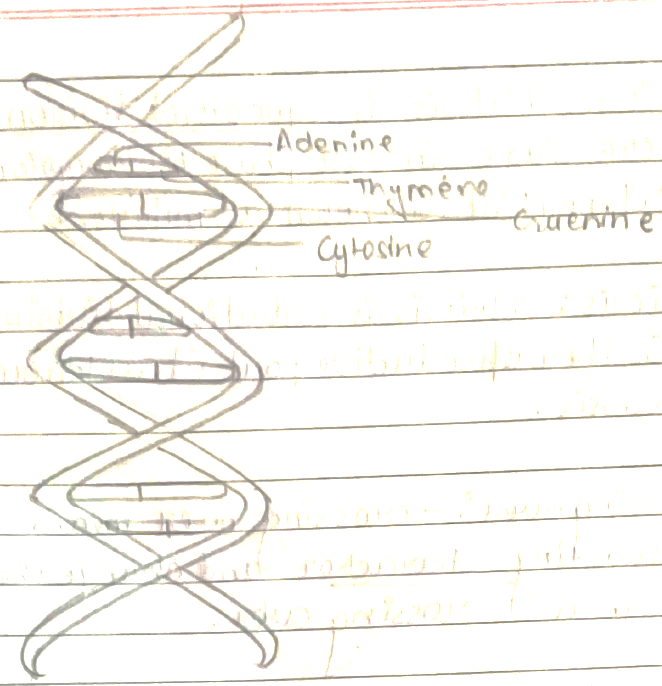 Adenine
Thyméne
Guenine
Cytosine